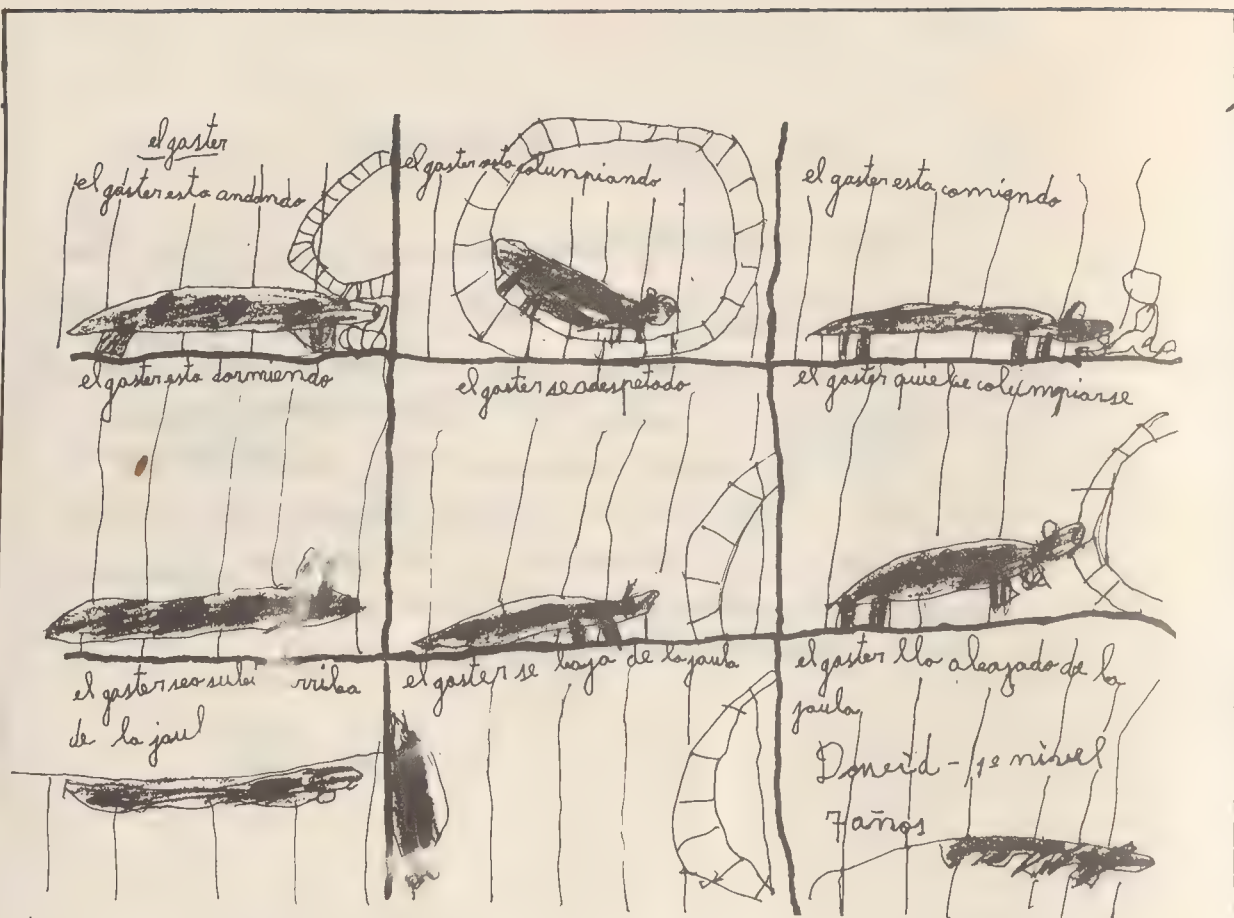 el gaster
el gaster esta andando
el gaster esta columpiando
el gaster esta comiendo
el gaster esta dormiendo
el gaster se a despetado
el gaster quiere columpiarse
el gaster se a rriba
de la jaul
el gaster se baja de la jaula
el gaster a bajado de la
jaula
1º nivel
7 años